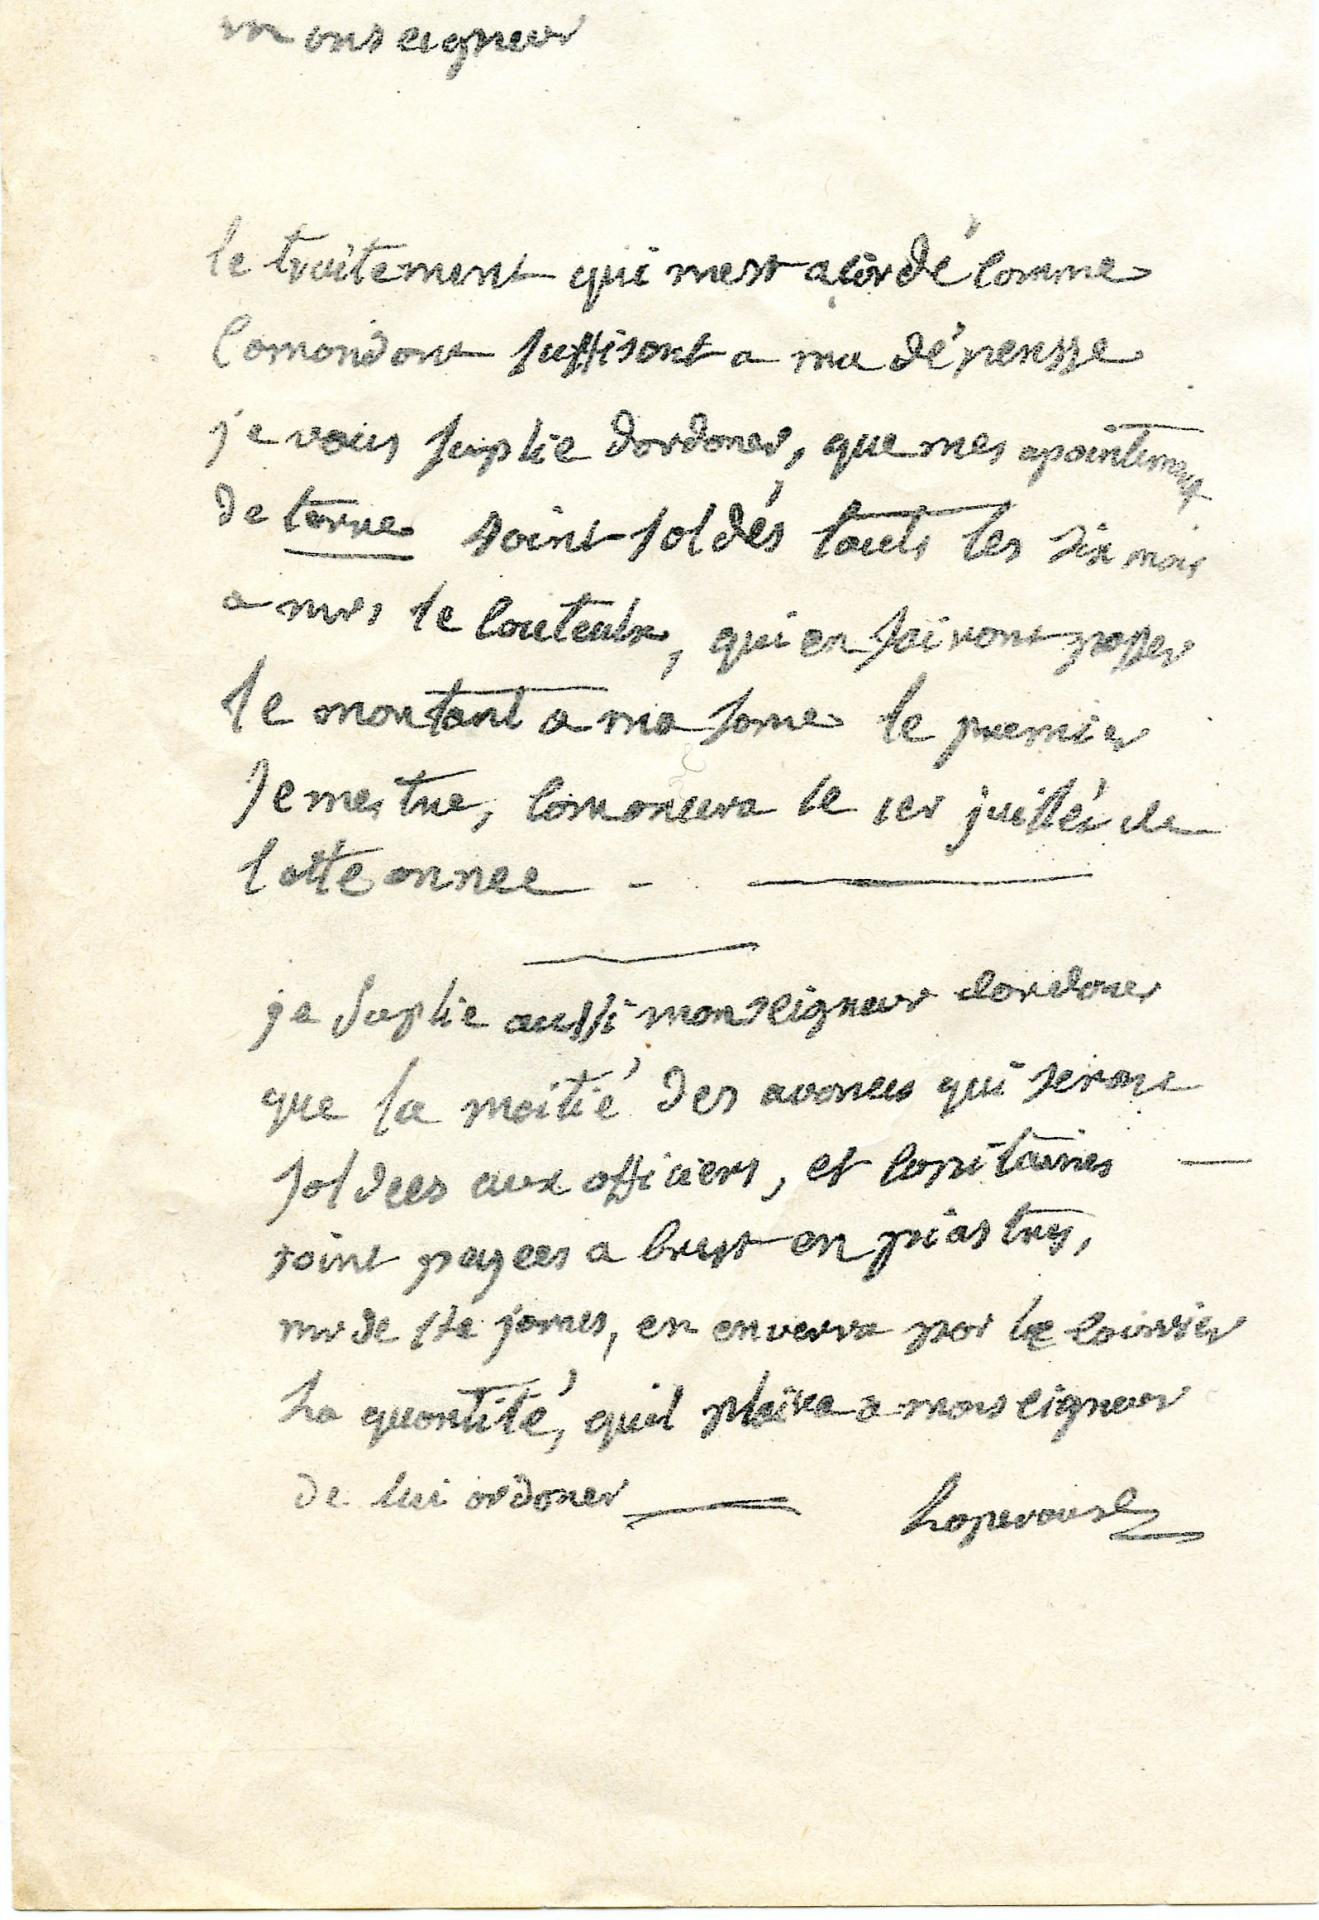 monseigneur
le traitement qui mest acordé comme
comandant suffisant a ma dépensse
je vous suplie dordoner, que mes apointements
de terre soint soldés touts les six mois
a mrs le couteulx, qui en fairont passer
le montant a ma fame le premier
semestre, comancera le 1er juillét de
cette annee
je suplie aussi monseigneur dordoner
que la moitié des avances qui seront
soldees aux officiers, et capitaines
soint payees a brest en piastres,
mr de ste james, en enverra par le courrier
la quantité, quil plaira a monseigneur
de lui ordoner laperouse